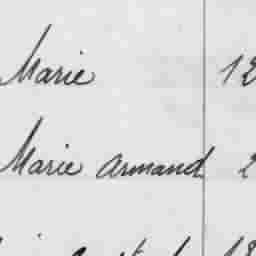 Marie 12
Marie Armand 2